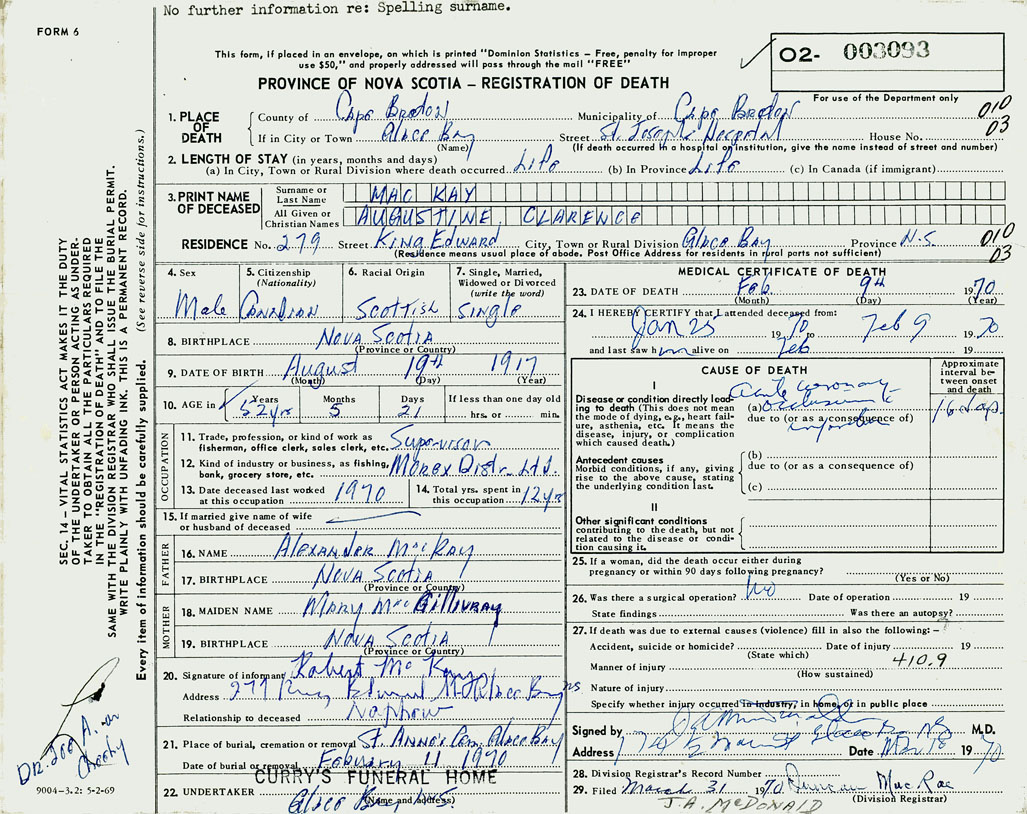 No further information re: Spelling surname.
FORM 6
This form, if placed in an envelope, on which is printed "Dominion Statistics – Free, penalty for improper
use $50," and properly addressed will pass through the mail "FREE"
O2- 003093
PROVINCE OF NOVA SCOTIA – REGISTRATION OF DEATH
For use of the Department only
1. PLACE OF DEATH
County of Cape Breton Municipality of Cape Breton 010
If in City or Town Glace Bay Street St. Joseph's Hospital House No. 03
(Name) (If death occurred in a hospital or institution, give the name instead of street and number)
2. LENGTH OF STAY (in years, months and days)
(a) In City, Town or Rural Division where death occurred Life (b) In Province Life (c) In Canada (if immigrant)
3. PRINT NAME OF DECEASED
Surname or Last Name MAC KAY
All Given or Christian Names AUGUSTINE CLARENCE
RESIDENCE No. 279 Street King Edward City, Town or Rural Division Glace Bay Province N.S. 010
(Residence means usual place of abode. Post Office Address for residents in rural parts not sufficient) 03
4. Sex Male
5. Citizenship (Nationality) Canadian
6. Racial Origin Scottish
7. Single, Married, Widowed or Divorced (write the word) Single
8. BIRTHPLACE Nova Scotia
(Province or Country)
9. DATE OF BIRTH August 19th 1917
(Month) (Day) (Year)
10. AGE in Years Months Days If less than one day old
52 yrs 5 21 hrs. or min.
OCCUPATION
11. Trade, profession, or kind of work as fisherman, office clerk, sales clerk, etc. Supervisor
12. Kind of industry or business, as fishing, bank, grocery store, etc. Distr. Ltd.
13. Date deceased last worked at this occupation 1970
14. Total yrs. spent in this occupation 12 yrs
15. If married give name of wife or husband of deceased
FATHER
16. NAME Alexander MacKay
17. BIRTHPLACE Nova Scotia
(Province or Country)
MOTHER
18. MAIDEN NAME Mary MacGillivray
19. BIRTHPLACE Nova Scotia
(Province or Country)
20. Signature of informant Robert McKay
Address 277 King Edward St Glace Bay NS
Relationship to deceased Nephew
21. Place of burial, cremation or removal St. Anne's Cem. Glace Bay
Date of burial or removal February 11 1970
CURRY'S FUNERAL HOME
22. UNDERTAKER Glace Bay N.S.
(Name and address)
MEDICAL CERTIFICATE OF DEATH
23. DATE OF DEATH Feb. 9th 1970
(Month) (Day) (Year)
24. I HEREBY CERTIFY that I attended deceased from:
Jan 25 1970 to Feb 9 1970
and last saw him alive on Feb. 19
CAUSE OF DEATH
Approximate interval between onset and death
I
Disease or condition directly leading to death (This does not mean the mode of dying, e.g., heart failure, asthenia, etc. It means the disease, injury, or complication which caused death.)
(a) Acute coronary occlusion 16 days
due to (or as a consequence of)
Antecedent causes
Morbid conditions, if any, giving rise to the above cause, stating the underlying condition last.
(b)
due to (or as a consequence of)
(c)
II
Other significant conditions contributing to the death, but not related to the disease or condition causing it.
25. If a woman, did the death occur either during pregnancy or within 90 days following pregnancy?
(Yes or No)
26. Was there a surgical operation? No Date of operation 19
State findings Was there an autopsy?
27. If death was due to external causes (violence) fill in also the following: –
Accident, suicide or homicide? Date of injury 19
(State which) 410.9
Manner of injury
(How sustained)
Nature of injury
Specify whether injury occurred in industry, in home, or in public place
Signed by M.D.
Address Glace Bay NS Date Mar 18 1970
28. Division Registrar's Record Number
29. Filed March 31 1970 Duncan MacRae
(Division Registrar)
J.A. McDONALD
SEC. 14 – VITAL STATISTICS ACT MAKES IT THE DUTY
OF THE UNDERTAKER OR PERSON ACTING AS UNDERTAKER TO OBTAIN ALL THE PARTICULARS REQUIRED
IN THE "REGISTRATION OF DEATH" AND TO FILE THE
SAME WITH THE DIVISION REGISTRAR WHO SHALL ISSUE THE BURIAL PERMIT.
WRITE PLAINLY WITH UNFADING INK. THIS IS A PERMANENT RECORD.
Every item of information should be carefully supplied. (See reverse side for instructions.)
9004-3.2: 5-2-69